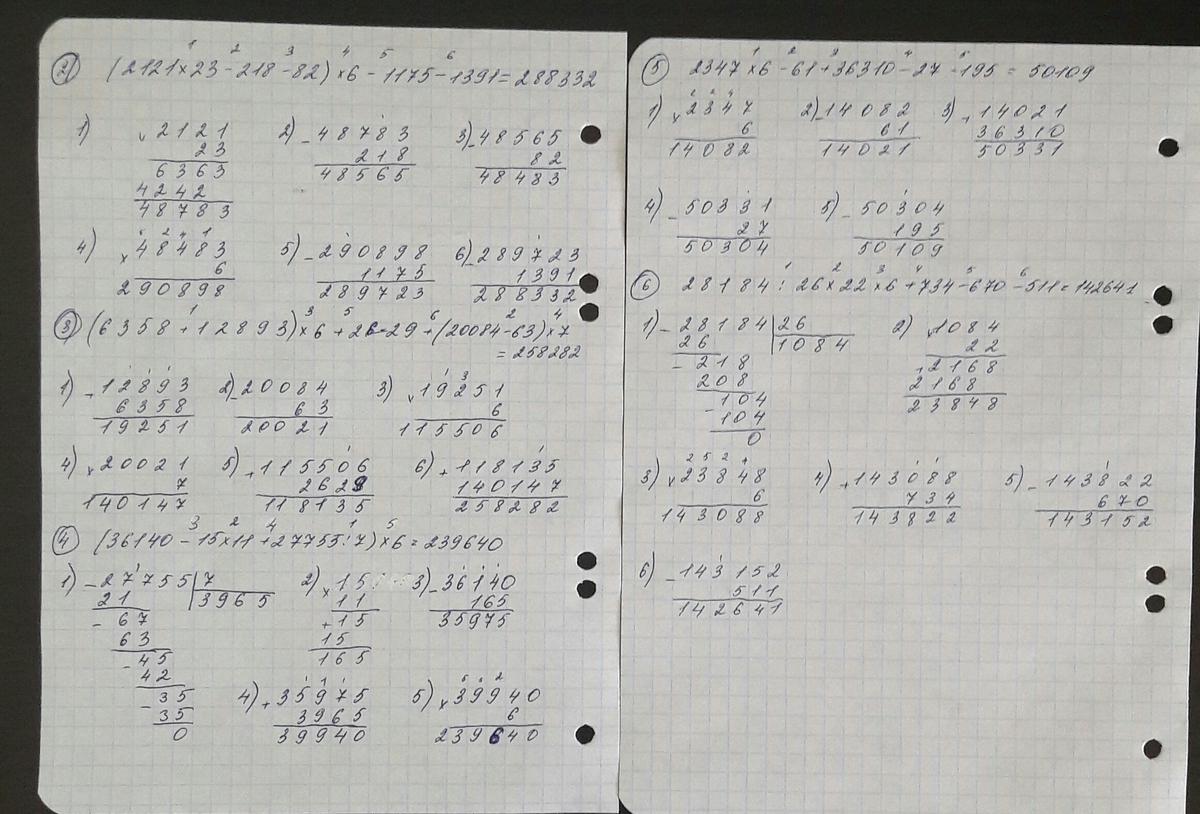 1 2 3 4 5 6
② (2121×23-218-82)×6-1175-1391=288332
1) ×2121 2) -48783 3) -48565
23 218 82
6363 48565 48483
4242
48783
6 2 4 1
4) ×48483 5) -290898 6) -289723
6 1175 1391
290898 289723 288332
1 3 5 6 2 4
③ (6358+12893)×6+26-29+(20084-63)×7
=258282
1) -12893 2) -20084 3) ×19251
6358 63 6
19251 20021 115506
4) ×20021 5) +115506 6) +118135
7 2629 140147
140147 118135 258282
3 2 4 1 5
④ (36140-15×11+27755:7)×6=239640
1) -27755|7 2) ×15 3) -36140
21 3965 11 165
-67 +15 35975
63 15
-45 165
42
-35 4) +35975 5) ×39940
35 3965 6
0 39940 239640
1 2 3 4 5
⑤ 2347×6-61+36310-27-195=50109
1) ×2347 2) -14082 3) +14021
6 61 36310
14082 14021 50331
4) -50331 5) -50304
27 195
50304 50109
1 2 3 4 5 6
⑥ 28184:26×22×6+734-670-511=142641
1) -28184|26 2) ×1084
26 1084 22
-218 +2168
208 2168
-104 23848
104
0
2 5 2 4
3) ×23848 4) +143088 5) -143822
6 734 670
143088 143822 143152
6) -143152
511
142641